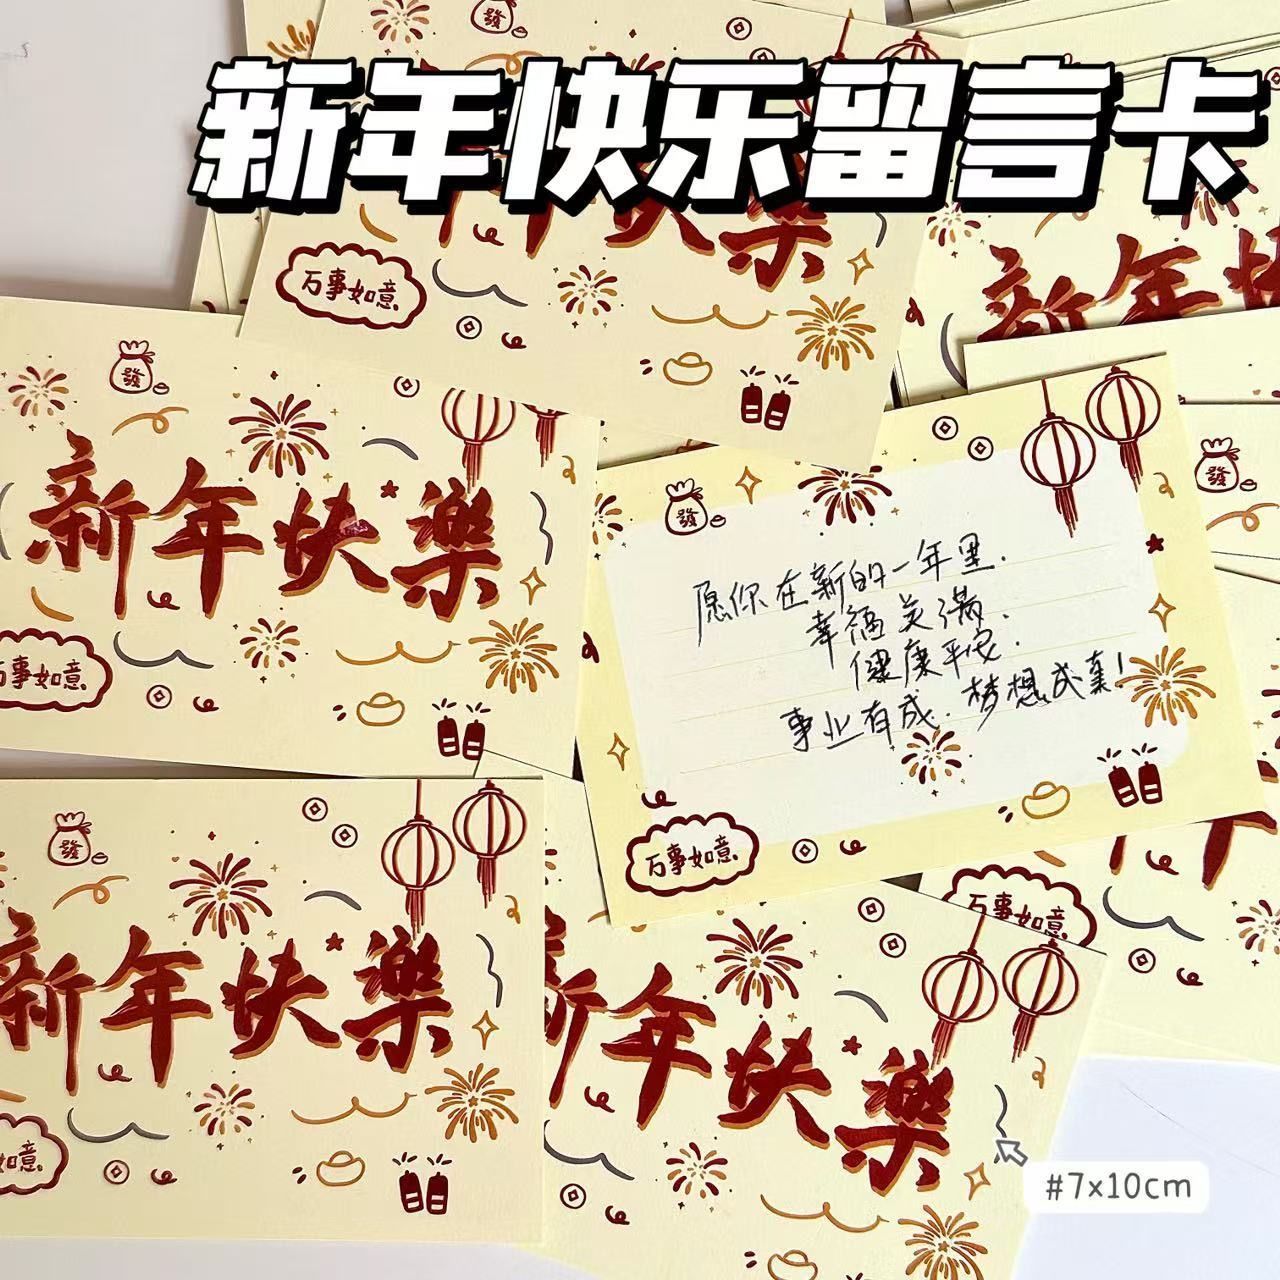 新年快乐留言卡
發
万事如意
新年快樂
新年快
發
新年快樂
万事如意
發
發
愿你在新的一年里.
幸福美满.
健康平安.
事业有成.梦想成真!
万事如意
發
新年快樂
如意
万事如意
新年快樂
#7x10cm